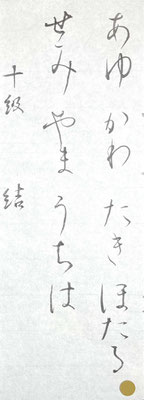 あゆ かわ たき ほたる
せみ やま うちは
十級 結